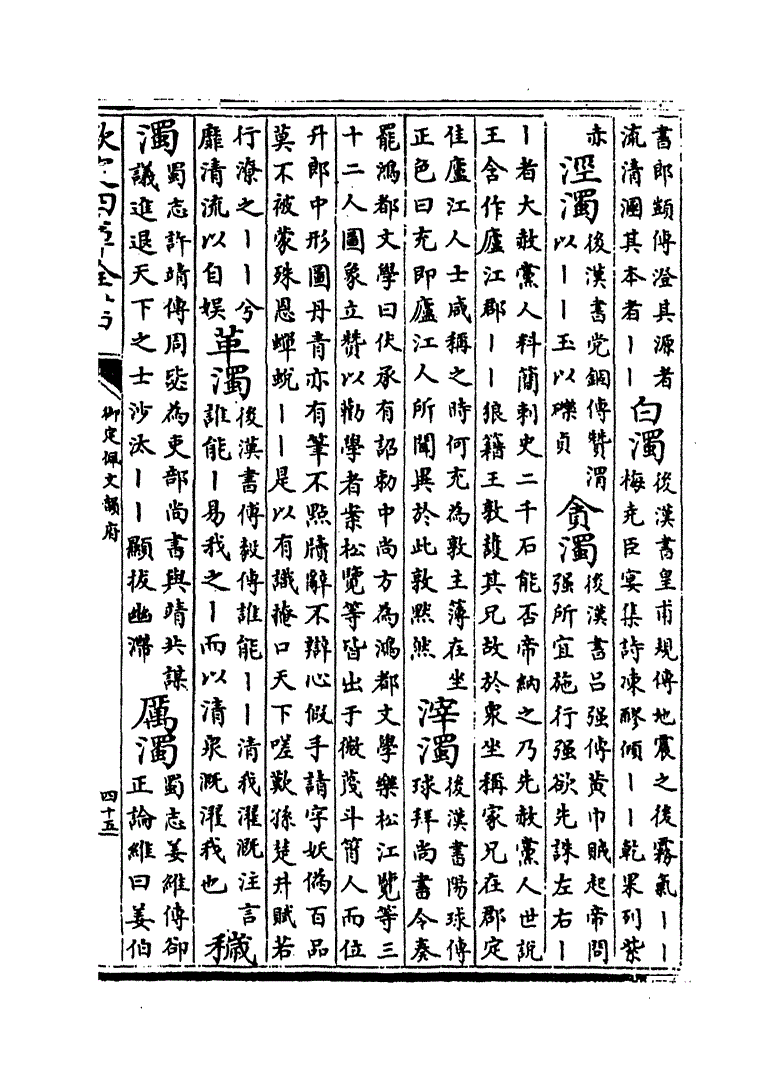 書郎顗傳澄其源者
流清溷其本者丨丨
白濁
後漢書皇甫規傳地震之後霧氣丨丨
梅堯臣宴集詩凍醪傾丨丨乾果列紫
赤
涇濁
後漢書党錮傳贊渭
以丨丨玉以礫貞
貪濁
後漢書吕强傳黄巾賊起帝問
强所宜施行强欲先誅左右丨
丨者大赦黨人料簡刺史二千石能否帝納之乃先赦黨人世說
王含作廬江郡丨丨狼籍王敦護其兄故於衆坐稱家兄在郡定
佳廬江人士咸稱之時何充為敦主薄在坐
正色曰充即廬江人所聞異於此敦黙然
滓濁
後漢書陽球傳
球拜尚書令奏
罷鴻都文學曰伏承有詔勅中尚方為鴻都文學樂松江覽等三
十二人圖象立贊以勸學者案松覽等皆出于微蔑斗筲人而位
升郎中形圖丹青亦有筆不點牘辭不辯心假手請字妖偽百品
莫不被蒙殊恩蟬蛻丨丨是以有識掩口天下嗟歎孫楚井賦若
行潦之丨丨兮
靡清流以自娱
革濁
後漢書傅毅傳誰能丨丨清我濯溉注言
誰能丨易我之丨而以清泉溉濯我也
穢
濁
蜀志許靖傳周毖為吏部尚書與靖共謀
議進退天下之士沙汰丨丨顯拔幽滯
厲濁
蜀志姜維傳郤
正論維曰姜伯
欽定四庫全書
御定佩文韻府
四十五